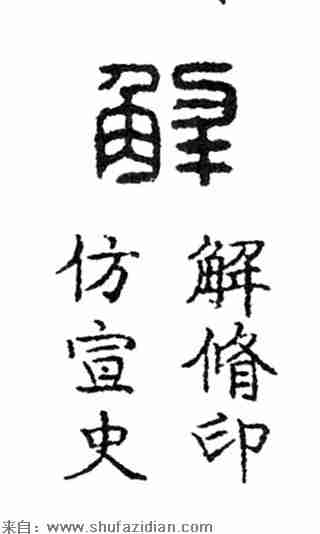 解
解脩印
仿宣史
来自：www.shufazidian.com